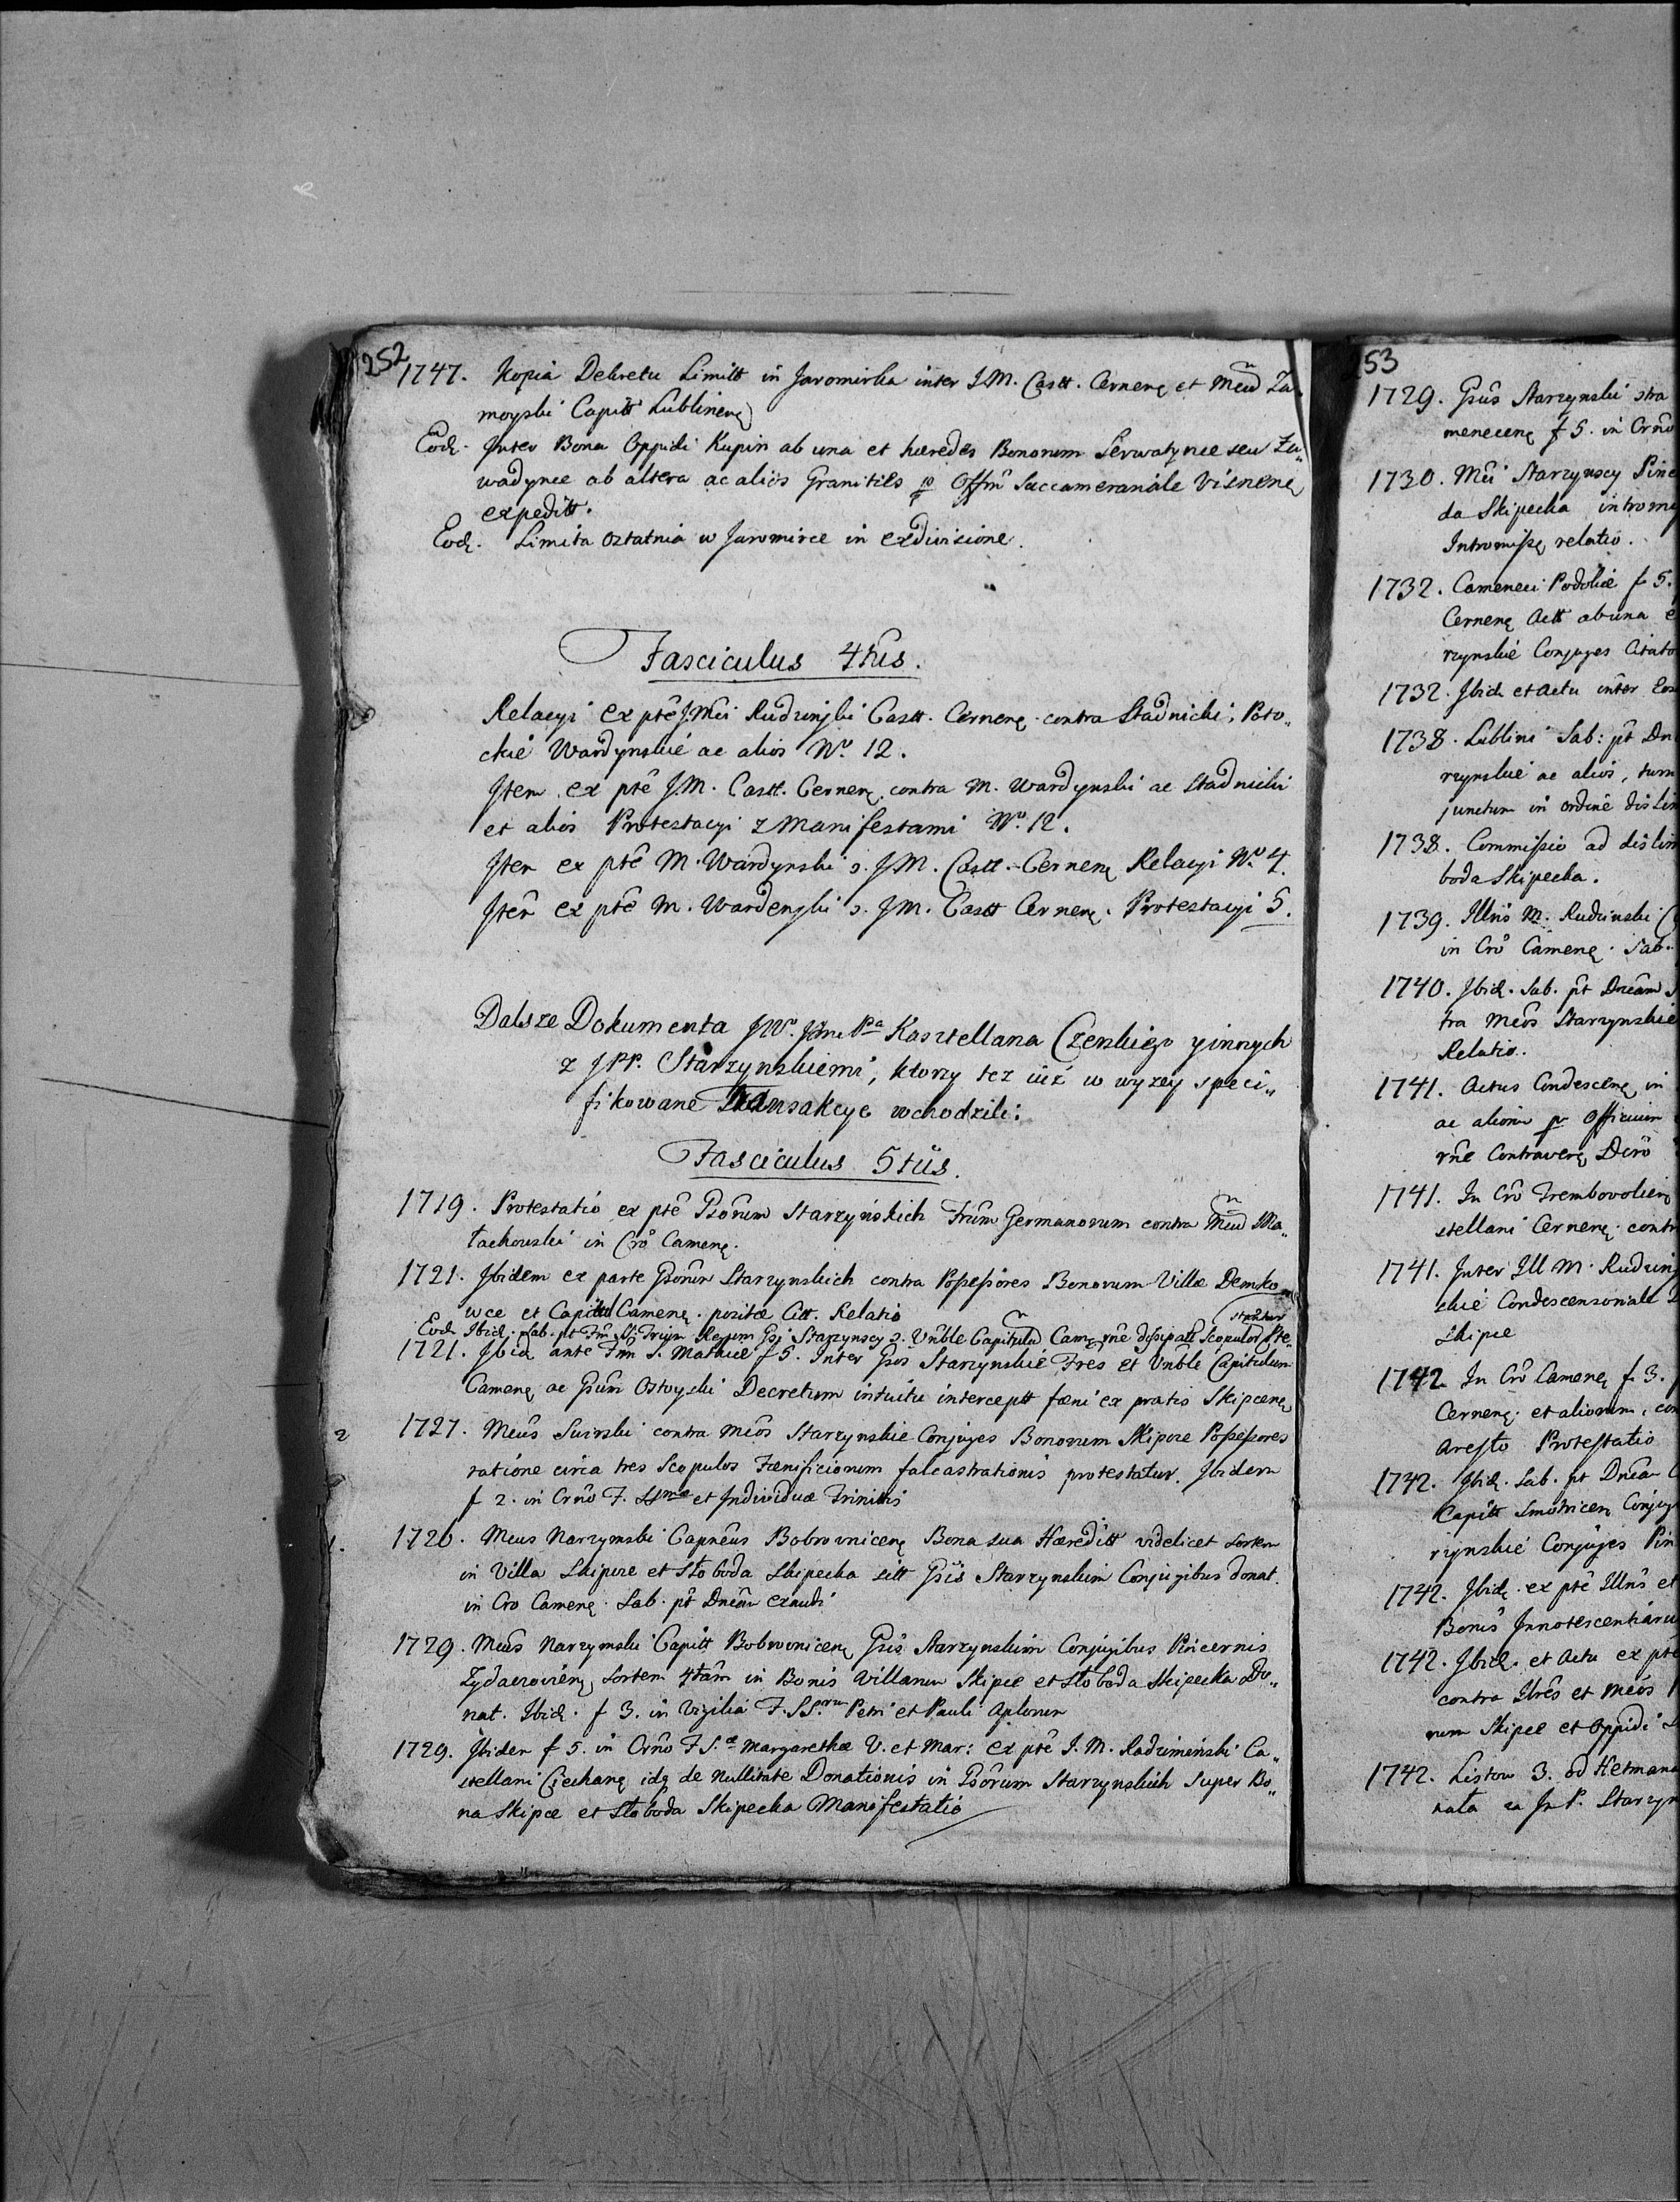 252
1747. Kopia Dekretu Limitt in Jaromirka inter J.M. Castt. Cernenę et Meũd Za„
moyski Capitt Lublinenę
Eodę. Inter Bona Oppidi Kupin ab una et hæredes Bonorum Serwatynce seu Za„
wadynce ab altera ac alios Granities p Offm̃ Succamerariale Visnenę
expeditt.
Eodę. Limita oztatnia w Jaromirce in exdivisione.
Fasciculus 4tus.
Relacyi ex ptẽ J.M̃ci Rudzinski Castt. Cernenę. contra Stadnicki, Poto„
ckie Wardynskie ac alios No. 12.
Item ex ptẽ J.M. Castt. Cernenę. contra M. Wardynski ac Stadnicki
et alios Protestacyi z Manifestami No. 12.
Item ex ptẽ M. Wardynski ɔ. J.M. Castt. Cernenę Relacyi No. 4.
Item ex ptẽ M. Wardenski ɔ. J.M. Castt Cernenę. Protestacyi 5.
Dalsze Dokumenta JW. Jmci Pa Kasztellana Czerskiego y innych
z JPP. Starzynskiemi, ktorzy tez iuż w wyzey speci„
fikowane Transakcye wchodzili:
Fasciculus 5tus.
1719. Protestatio ex ptẽ Gsõrum Starzyńskich Frũm Germanorum contra Mẽud Ma„
łachowski in Crõ Camenę.
1721. Ibidem ex parte Gsõrum Starzynskich contra Possessores Bonorum Villæ Demko„
wce et Capittul Camenę. positæ Citt. Relatio
Eodę Ibidę. Sab. pt Fm̃ S. Trium Regum Gsi Starzynscy ɔ. Vñble Capitulũ Camę rñe dissipatt Scopulor Pro„
stñtur
1721. Ibidę ante Fm̃ S. Mathiæ f 5. Inter Gsos Starzynskie Fres et Vñble Capitulum
Camenę ac Gsũm Ostoyski Decretum intuitu interceptt fæni ex pratis Skipcenę
2 1727. Meũs Swirski contra meõs Starzynskie Conjuges Bonorum Skipce Possessores
ratione circa tres Scopulos Fænificiorum falcastrationis protestatur. Ibidem
f 2. in Crñõ F. SSmæ et Individuæ Trinittis
1. 1726. Meus Narzymski Capneus Bobrovnicenę Bona sua Hæreditt videlicet sortem
in Villa Skipce et Słoboda Skipecka sitt Gsis Starzynskim Conjugibus donat.
in Cro Camenę. Sab. pt Dnẽam exaudi
1729. Meũs Narzymski Capitt Bobrovnicenę Gsis Starzynskim Conjugibus Pincernis
Zydaczovienę sortem 4tam in Bonis Villarum Skipce et Słoboda Skipecka Do„
nat. Ibidę. f 3. in Vigilia F. SS.rum Petri et Pauli Aplorum
1729. Ibidem f 5. in Crñõ F S.æ Margarethæ V. et Mar: ex ptẽ J. M. Radzimiński Ca„
stellani Ciechanę idę de nullitate Donationis in Gsõrum Starzynskich super Bo„
na Skipce et Słoboda Skipecka Manifestatio
253
1729. Gsũs Starzynski ɔtra
menecenę f 5. in Crñõ
1730. Mci Starzynscy Pinc
da Skipecka intromi
Intromissę relatio.
1732. Cameneci Podoliæ f 5.
Cernenę Actt ab una e
rzynskie Conjuges Citato
1732. Ibidę et Actu inter Eos
1738. Lublini Sab: pt Dn
rzynskie ac alios, tum
junctum in ordine dislim
1738. Commissio ad dislim
boda Skipecka.
1739. Illris M. Rudzinski C
in Crõ Camenę. Sab.
1740. Ibidę. Sab. pt Dnẽam
tra Meõs Starzynskie
Relatio.
1741. Actus Condescenę in
ac aliorum p Officium
rñe Contraverę Decõ
1741. In Crõ Trembovolienę
stellani Cernenę. contr
1741. Inter Ill M. Rudzin
ckie Condescensoriale
Skipce
1742 In Crõ Camenę f 3.
Cernenę. et aliorum, con
Aresto Protestatio
1742. Ibidę. Sab. pt Dnẽa
Capitt Smotricenę Conjug
rzynskie Conjuges Pin
1742. Ibidę. ex ptẽ Illris et
Bonis Innotescentiaru
1742. Ibidę. et Actu ex ptẽ
contra Illres et Meõs
rum Skipce et Oppidi
1742. Listow 3. od Hetmana
nata za Jr P. Starzyn